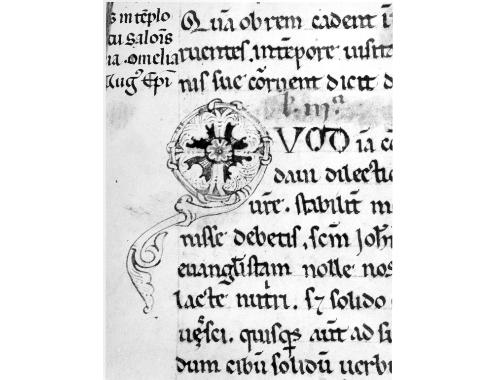 s in tēplo
cu Saloīs
ia. omelia
Aug' Ep̄i
Quā ob rem cadent ī
ruentes. in tēpore uisita
nis sue cōruent dicit d
VOD iā co
daui dilectio
ure. stabiliū m
nisse debetis. scm̄ Joh̄
euangl̄istam nolle nos
lacte nutr̄i. sꝫ solido
uęsci. quisqȝ aūt ad
dum cibū solidū uerb